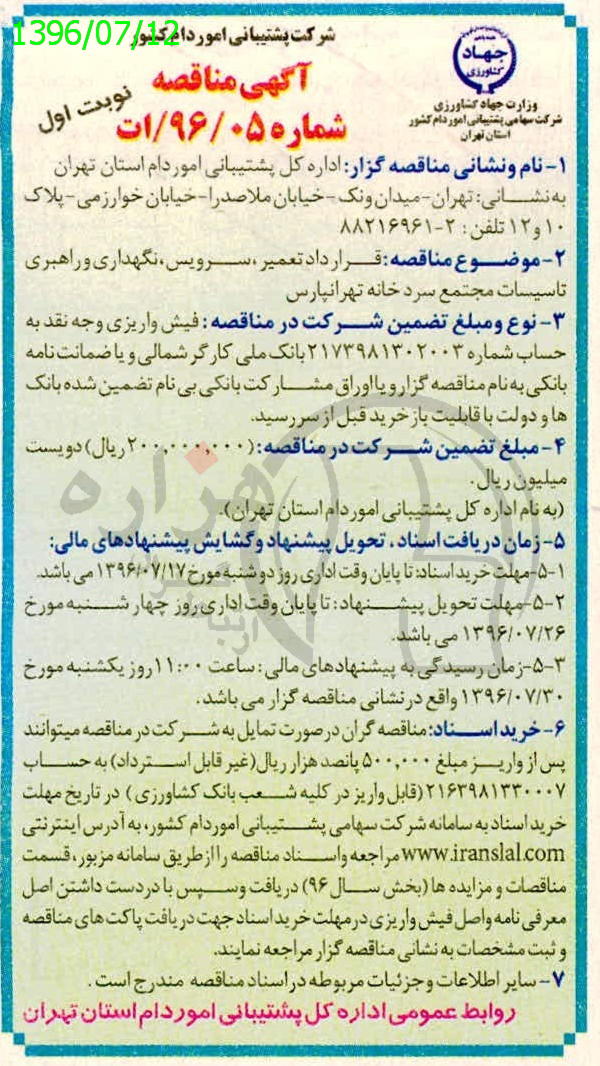 1396/07/12
شرکت پشتیبانی امور دام کشور
جهاد
کشاورزی
وزارت جهاد کشاورزی
شرکت سهامی پشتیبانی امور دام کشور
استان تهران
آگهی مناقصه
نوبت اول
شماره ۹۶/۰۵/ات
۱- نام ونشانی مناقصه گزار: اداره کل پشتیبانی امور دام استان تهران
به نشانی: تهران-میدان ونک-خیابان ملاصدرا-خیابان خوارزمی-پلاک
۱۰ و ۱۲ تلفن: ۲-۸۸۲۱۶۹۶۱
۲-موضوع مناقصه: قرار داد تعمیر، سرویس، نگهداری و راهبری
تاسیسات مجتمع سرد خانه تهرانپارس
۳- نوع ومبلغ تضمین شرکت در مناقصه: فیش واریزی وجه نقد به
حساب شماره ۲۱۷۳۹۸۱۳۰۲۰۰۳ بانک ملی کارگر شمالی و یا ضمانت نامه
بانکی به نام مناقصه گزار و یا اوراق مشارکت بانکی بی نام تضمین شده بانک
ها و دولت با قابلیت باز خرید قبل از سررسید.
۴- مبلغ تضمین شرکت در مناقصه: (۲۰۰,۰۰۰,۰۰۰ ریال) دویست
میلیون ریال.
(به نام اداره کل پشتیبانی امور دام استان تهران).
۵- زمان دریافت اسناد، تحویل پیشنهاد و گشایش پیشنهادهای مالی:
۵-۱-مهلت خرید اسناد: تا پایان وقت اداری روز دو شنبه مورخ ۱۳۹۶/۰۷/۱۷ می باشد.
۵-۲-مهلت تحویل پیشنهاد: تا پایان وقت اداری روز چهار شنبه مورخ
۱۳۹۶/۰۷/۲۶ می باشد.
۵-۳-زمان رسیدگی به پیشنهادهای مالی: ساعت ۱۱:۰۰ روز یکشنبه مورخ
۱۳۹۶/۰۷/۳۰ واقع در نشانی مناقصه گزار می باشد.
۶- خرید اسناد: مناقصه گران در صورت تمایل به شرکت در مناقصه میتوانند
پس از واریز مبلغ ۵۰۰,۰۰۰ پانصد هزار ریال (غیر قابل استرداد) به حساب
۲۱۶۳۹۸۱۳۳۰۰۰۷ (قابل واریز در کلیه شعب بانک کشاورزی) در تاریخ مهلت
خرید اسناد به سامانه شرکت سهامی پشتیبانی امور دام کشور، به آدرس اینترنتی
www.iranslal.com مراجعه و اسناد مناقصه را از طریق سامانه مزبور، قسمت
مناقصات و مزایده ها (بخش سال ۹۶) دریافت و سپس با در دست داشتن اصل
معرفی نامه و اصل فیش واریزی در مهلت خرید اسناد جهت دریافت پاکت های مناقصه
و ثبت مشخصات به نشانی مناقصه گزار مراجعه نمایند.
۷- سایر اطلاعات و جزئیات مربوطه در اسناد مناقصه مندرج است.
روابط عمومی اداره کل پشتیبانی امور دام استان تهران
هزاره